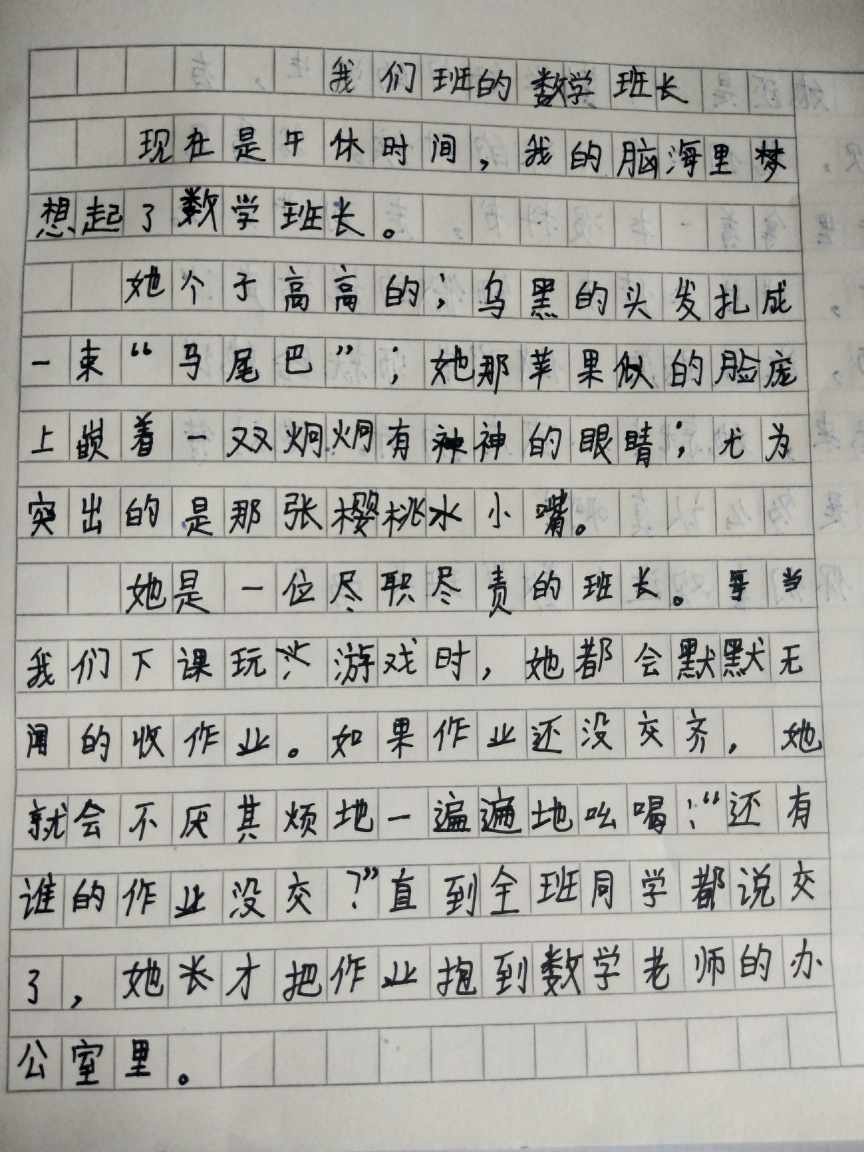 我们班的数学班长
现在是午休时间，我的脑海里梦
想起了数学班长。
她个子高高的；乌黑的头发扎成
一束“马尾巴”；她那苹果似的脸庞
上嵌着一双炯炯有神的眼睛；尤为
突出的是那张樱桃水小嘴。
她是一位尽职尽责的班长。每当
我们下课玩游戏时，她都会默默无
闻的收作业。如果作业还没交齐，她
就会不厌其烦地一遍遍地吆喝：“还有
谁的作业没交？”直到全班同学都说交
了，她长才把作业抱到数学老师的办
公室里。